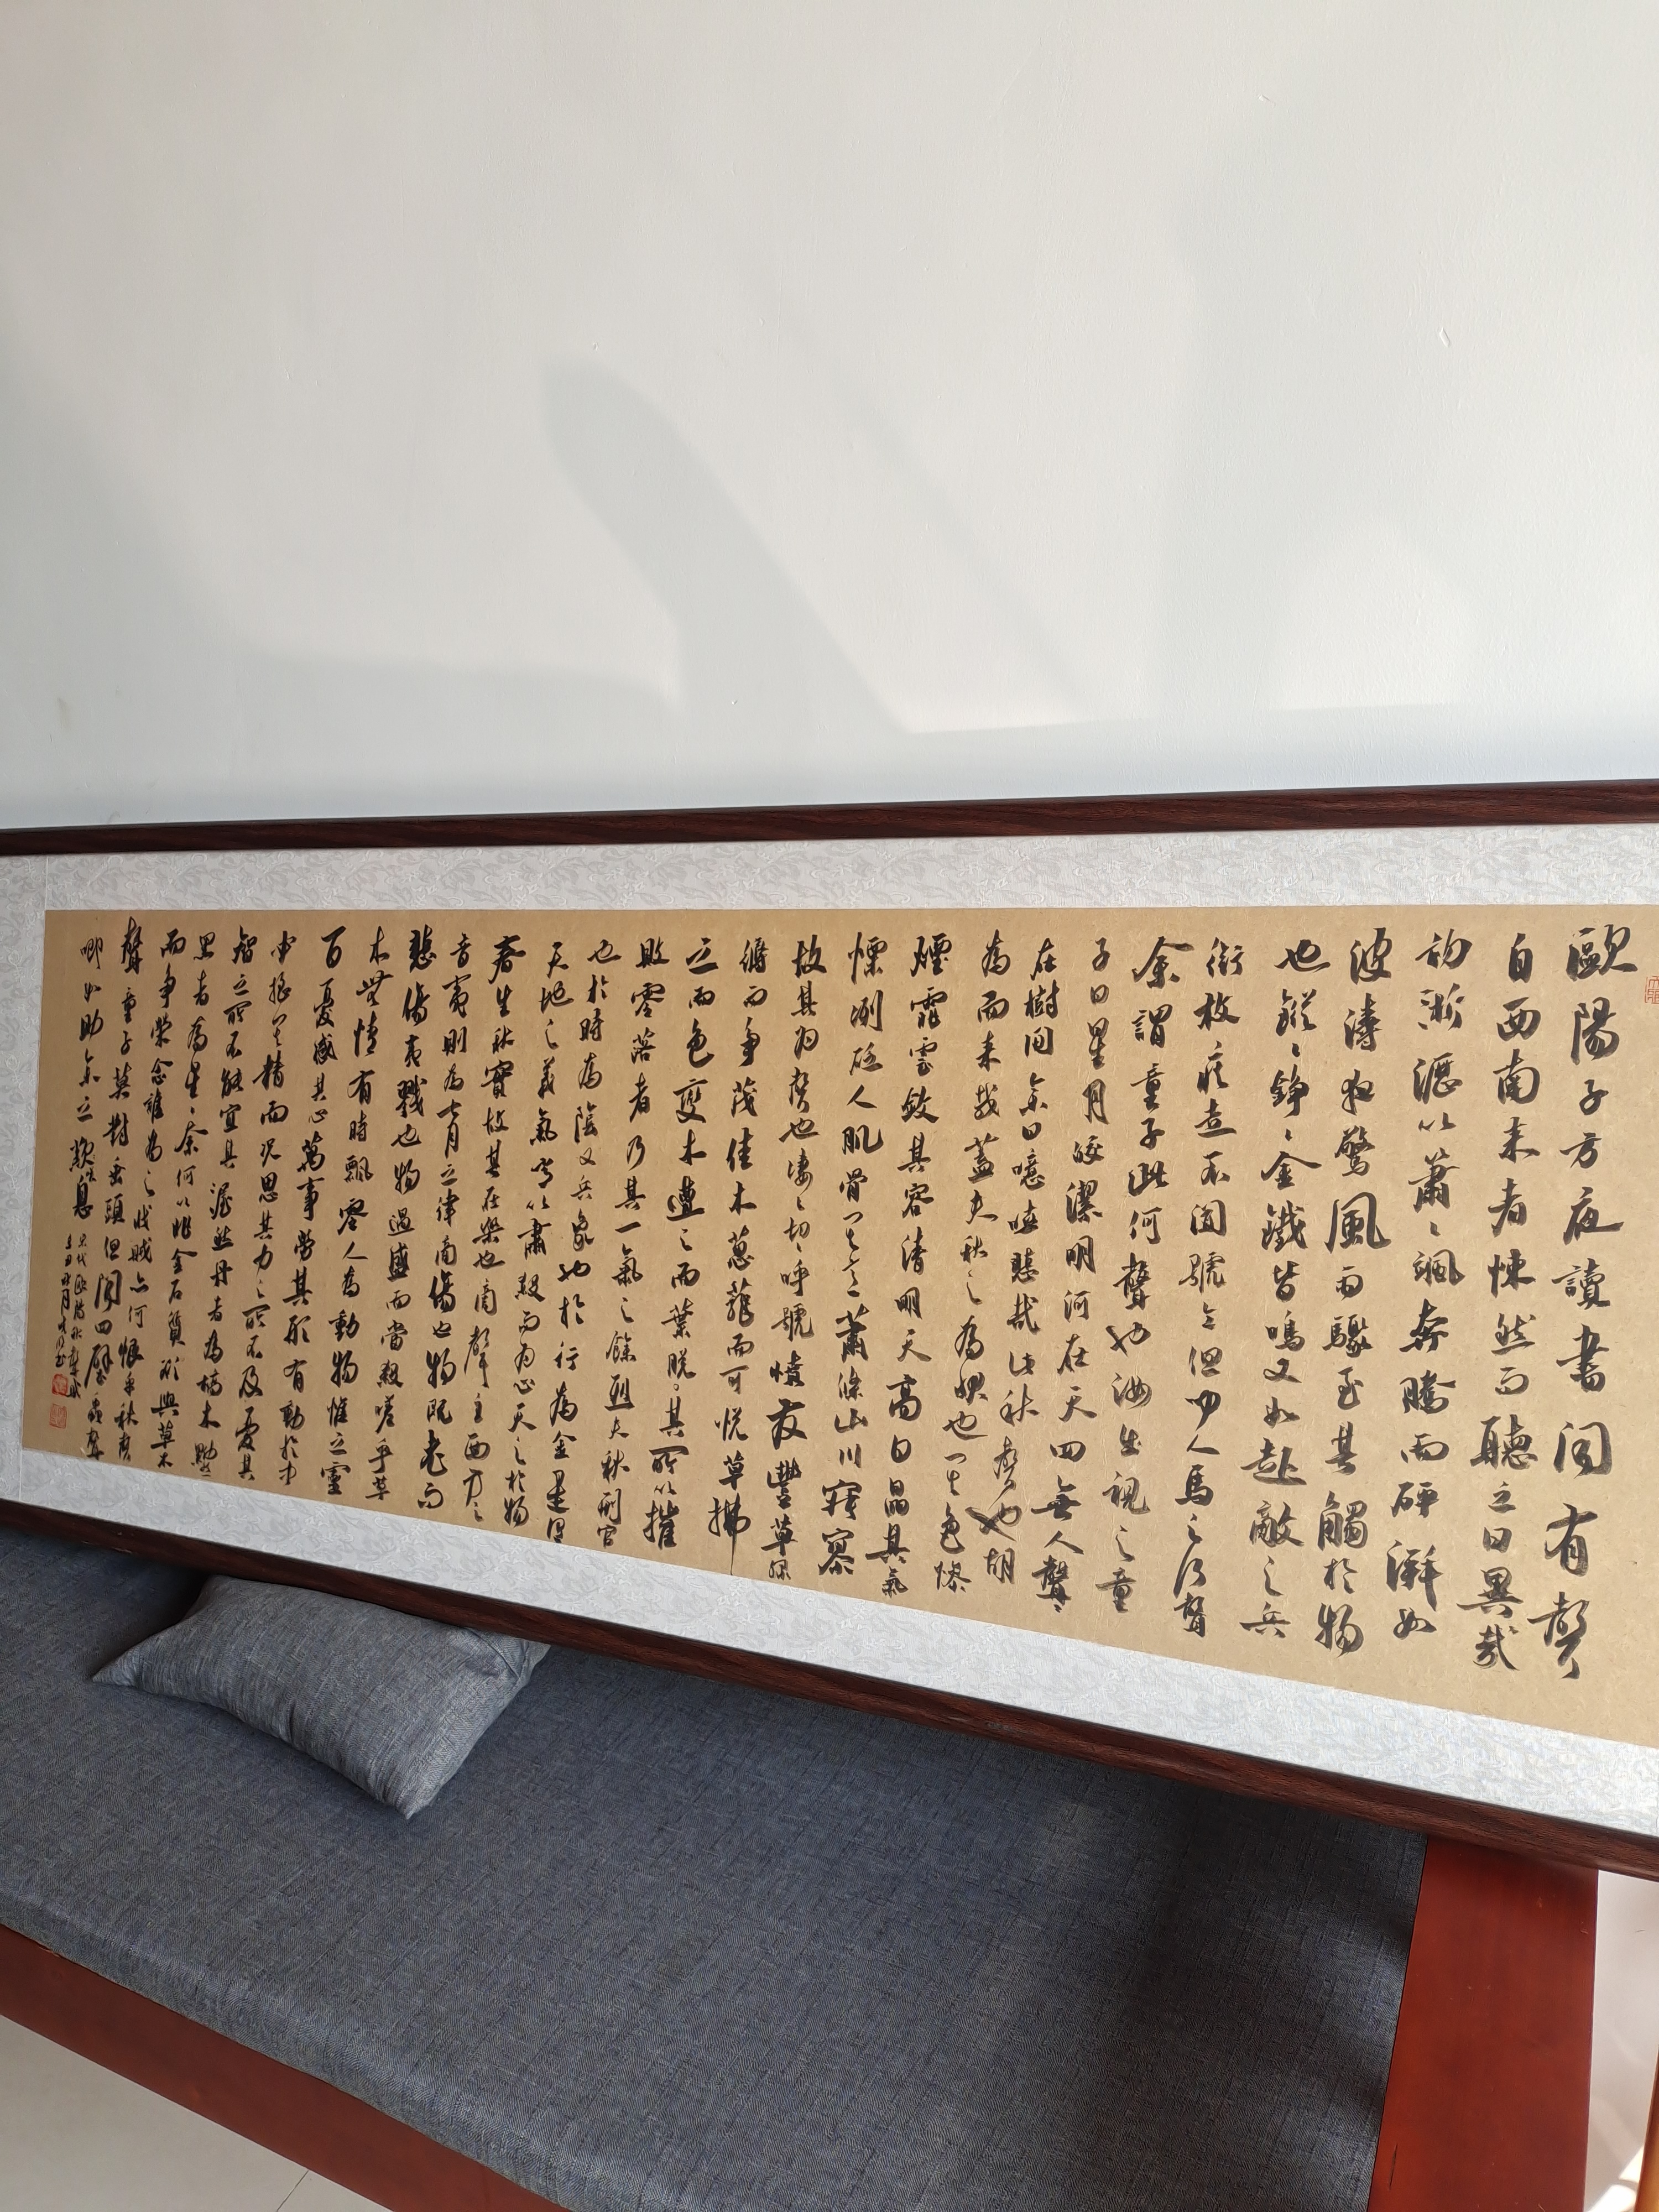 歐陽子方夜讀書聞有聲
自西南來者悚然而聽之曰異哉
初淅瀝以蕭々颯奔騰而砰湃如
波濤夜驚風雨驟至其觸於物
也鏦々錚々金鐵皆鳴又如赴敵之兵
銜枚疾走不聞號令但聞人馬之行聲
余謂童子此何聲也汝出視之童
子曰星月皎潔明河在天四無人聲々
在樹間余曰噫嘻悲哉此秋聲也胡
為而來哉蓋夫秋之為狀也其色慘
煙霏雲斂其容清明天高日晶其氣
慄冽砭人肌骨其意蕭條山川寂寥
故其為聲也淒々切々呼號憤發豐草綠
縟而爭茂佳木蔥蘢而可悅草拂
之而色變木遭之而葉脫其所以摧
敗零落者乃其一氣之餘烈夫秋刑官
也於時為陰又兵象也於行為金是謂
天地之義氣常以肅殺而為心天之於物
春生秋實故其在樂也商聲主西方之
音夷則為七月之律商傷也物既老而
悲傷夷戮也物過盛而當殺嗟乎草
木無情有時飄零人為動物惟之靈
百憂感其心萬事勞其形有動於中
必搖其精而況思其力之所不及憂其
智之所不能宜其渥然丹者為槁木黟然
黑者為星々奈何以非金石質欲與草木
而爭榮念誰為之戕賊亦何恨乎秋聲
聲童子莫對垂頭但聞四壁蟲聲
唧如助余之歎息